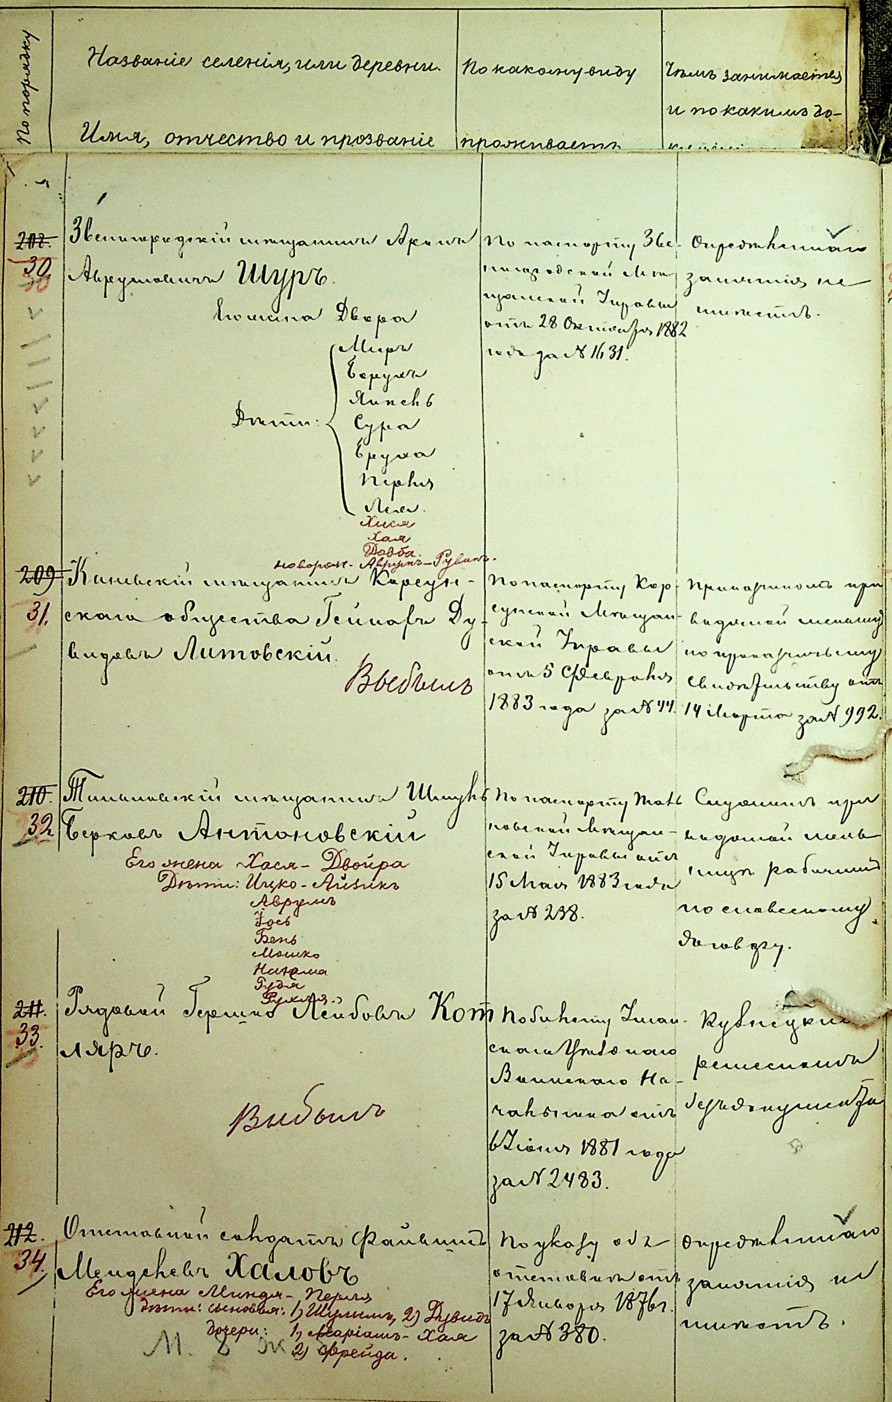 По порядку
Названіе селенія, или деревни.
Имя, отчество и прозваніе
По какому виду
проживаетъ
Чѣмъ занимается
и по какимъ до-
208.
30
Звенигородскій мѣщанинъ Аронъ
Аврумовичъ Шуръ.
Его жена Двора
Дѣти:
Мееръ
Борухъ
Янкель
Сура
Бруха
Перля
Лея
Хися
Хая
Добба
новорож. Аврумъ-Рувинъ
По паспорту Зве-
нигородской Мѣ-
щанской Управы
отъ 28 Октября 1882
года за № 1631.
Опредѣленнаго
занятія не
имѣетъ.
209
31.
Каневскій мѣщанинъ Корсун-
скаго общества Ду-
видовъ Литовскій.
Выбылъ
По паспорту Кор-
сунской Мѣщан-
ской Управы
отъ 5 Февраля
1883 года за № 44.
Прикащикъ при
водяной мельницѣ
по прикащичьему
свидѣтельству отъ
14 Марта за № 992.
210.
32
мѣщанинъ
Берковъ Антоновскій
Его жена Хася-Двойра
Дѣти: Ицко-Айзикъ
Аврумъ
Іось
Бень
Мошко
Нахома
Рудя
Рухля.
По паспорту
Мѣщан-
ской Управы отъ
15 Мая 1883 года
за № 238.
Служитъ при
водяной мель-
ницѣ рабочимъ
по словесному
договору.
211.
33.
Рядовой Гершко Лейбовъ Кот
ляръ.
Выбылъ
По билету Уман-
скаго Уѣзднаго
Воинскаго На-
чальника отъ
6 Іюня 1881 года
за № 2483.
Кузнецкимъ
ремесломъ
безъ документа
212.
34.
Отставной солдатъ Файвишъ
Менделевъ Халовъ
Его жена Миндля-Перля
дѣти: сыновья: 1) Шулимъ, 2) Дувидъ
дочери: 1) Маріамъ-Хая
2) Фрейда.
М. 8 ж
По указу объ
отставкѣ отъ
17 Января 1876 г.
за № 380.
Опредѣленнаго
занятія не
имѣетъ.